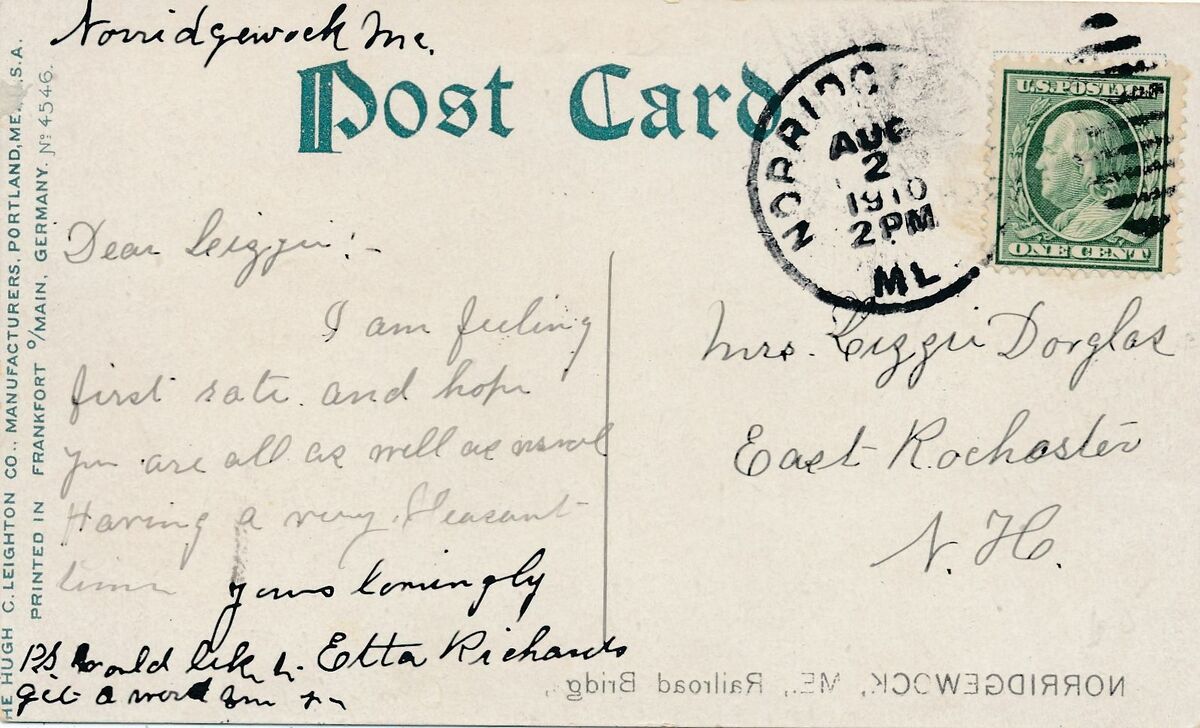 Norridgewock Me.
Post Card
THE HUGH C. LEIGHTON CO., MANUFACTURERS, PORTLAND, ME., U.S.A.
PRINTED IN FRANKFORT o/MAIN, GERMANY. No 4546.
NORRIDGE
AUG
2
1910
2 PM
ME
U.S. POSTAGE
ONE CENT
Dear Lizzie :-
I am feeling
first rate and hope
you are all as well as usual
Having a very Pleasant
time
yours lovingly
Etta Richards
P.S. would like to
get a word
Mrs. Lizzie Dorglas
East Rochester
N. H.
NORRIDGEWOCK, ME., Railroad Bridg